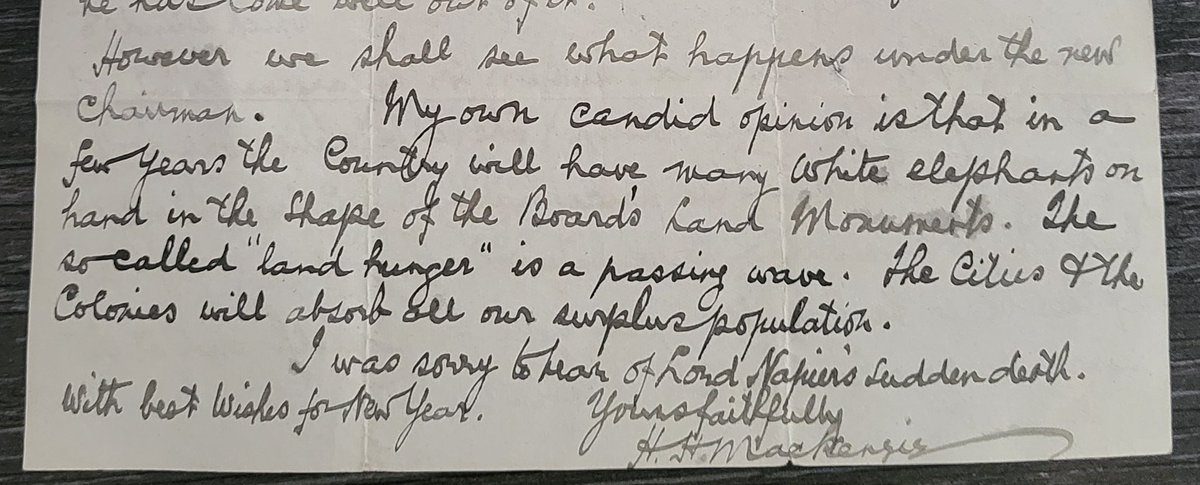 he has come well out of it.
However we shall see what happens under the new
Chairman. My own candid opinion is that in a
few years the Country will have many White elephants on
hand in the shape of the Board's Land Monuments. The
so called "land hunger" is a passing wave. The Cities & the
Colonies will absorb all our surplus population.
I was sorry to hear of Lord Napier's sudden death.
With best Wishes for New Year. Yours faithfully
H. H. Mackenzie